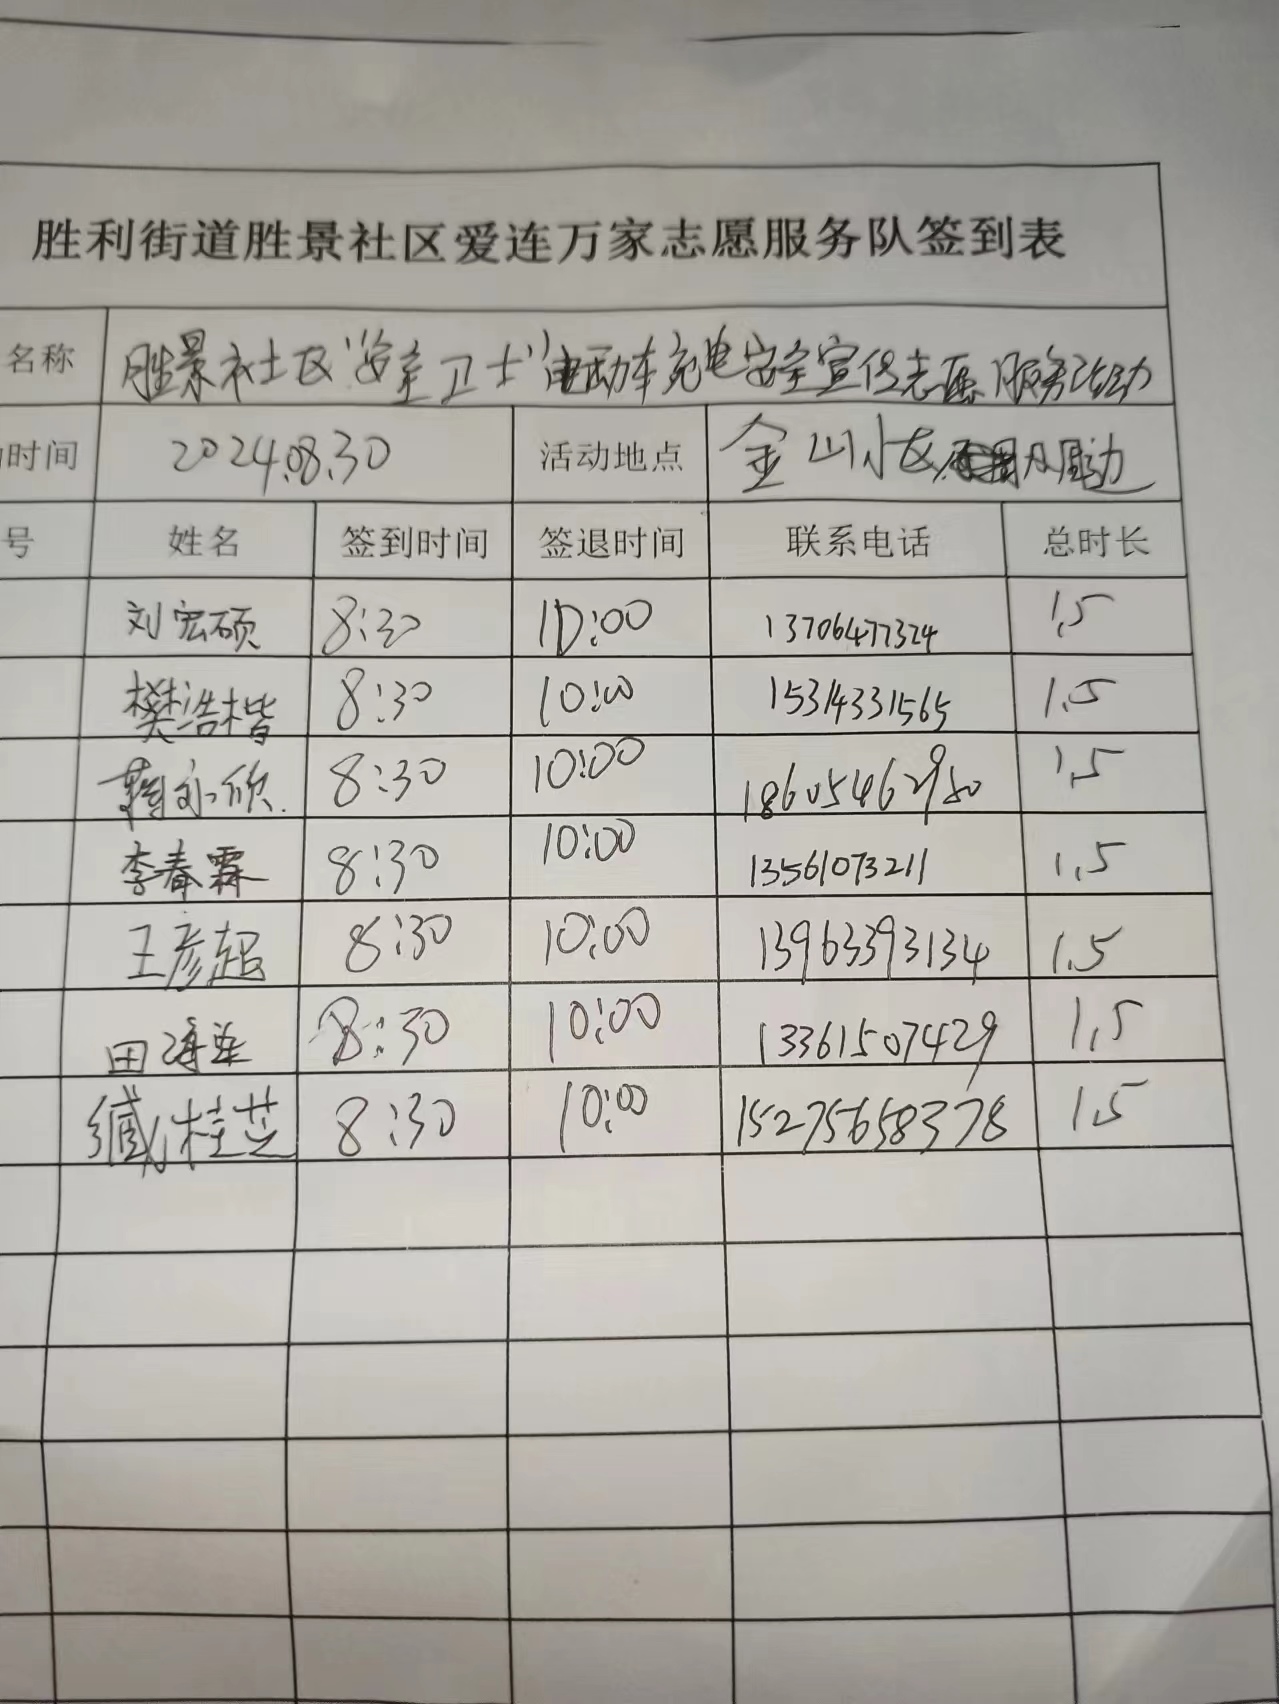 胜利街道胜景社区爱连万家志愿服务队签到表
名称 胜景社区"安全卫士"电动车充电安全宣传志愿服务活动
时间 2024.08.30 活动地点 金山小区及周边
号 姓名 签到时间 签退时间 联系电话 总时长
刘宏硕 8:30 10:00 13706477324 1.5
樊浩楷 8:30 10:00 15314331565 1.5
韩永欣 8:30 10:00 18605462980 1.5
李春霖 8:30 10:00 13561073211 1.5
王彦超 8:30 10:00 13963393134 1.5
田 8:30 10:00 13361507429 1.5
臧桂芝 8:30 10:00 15275658378 1.5